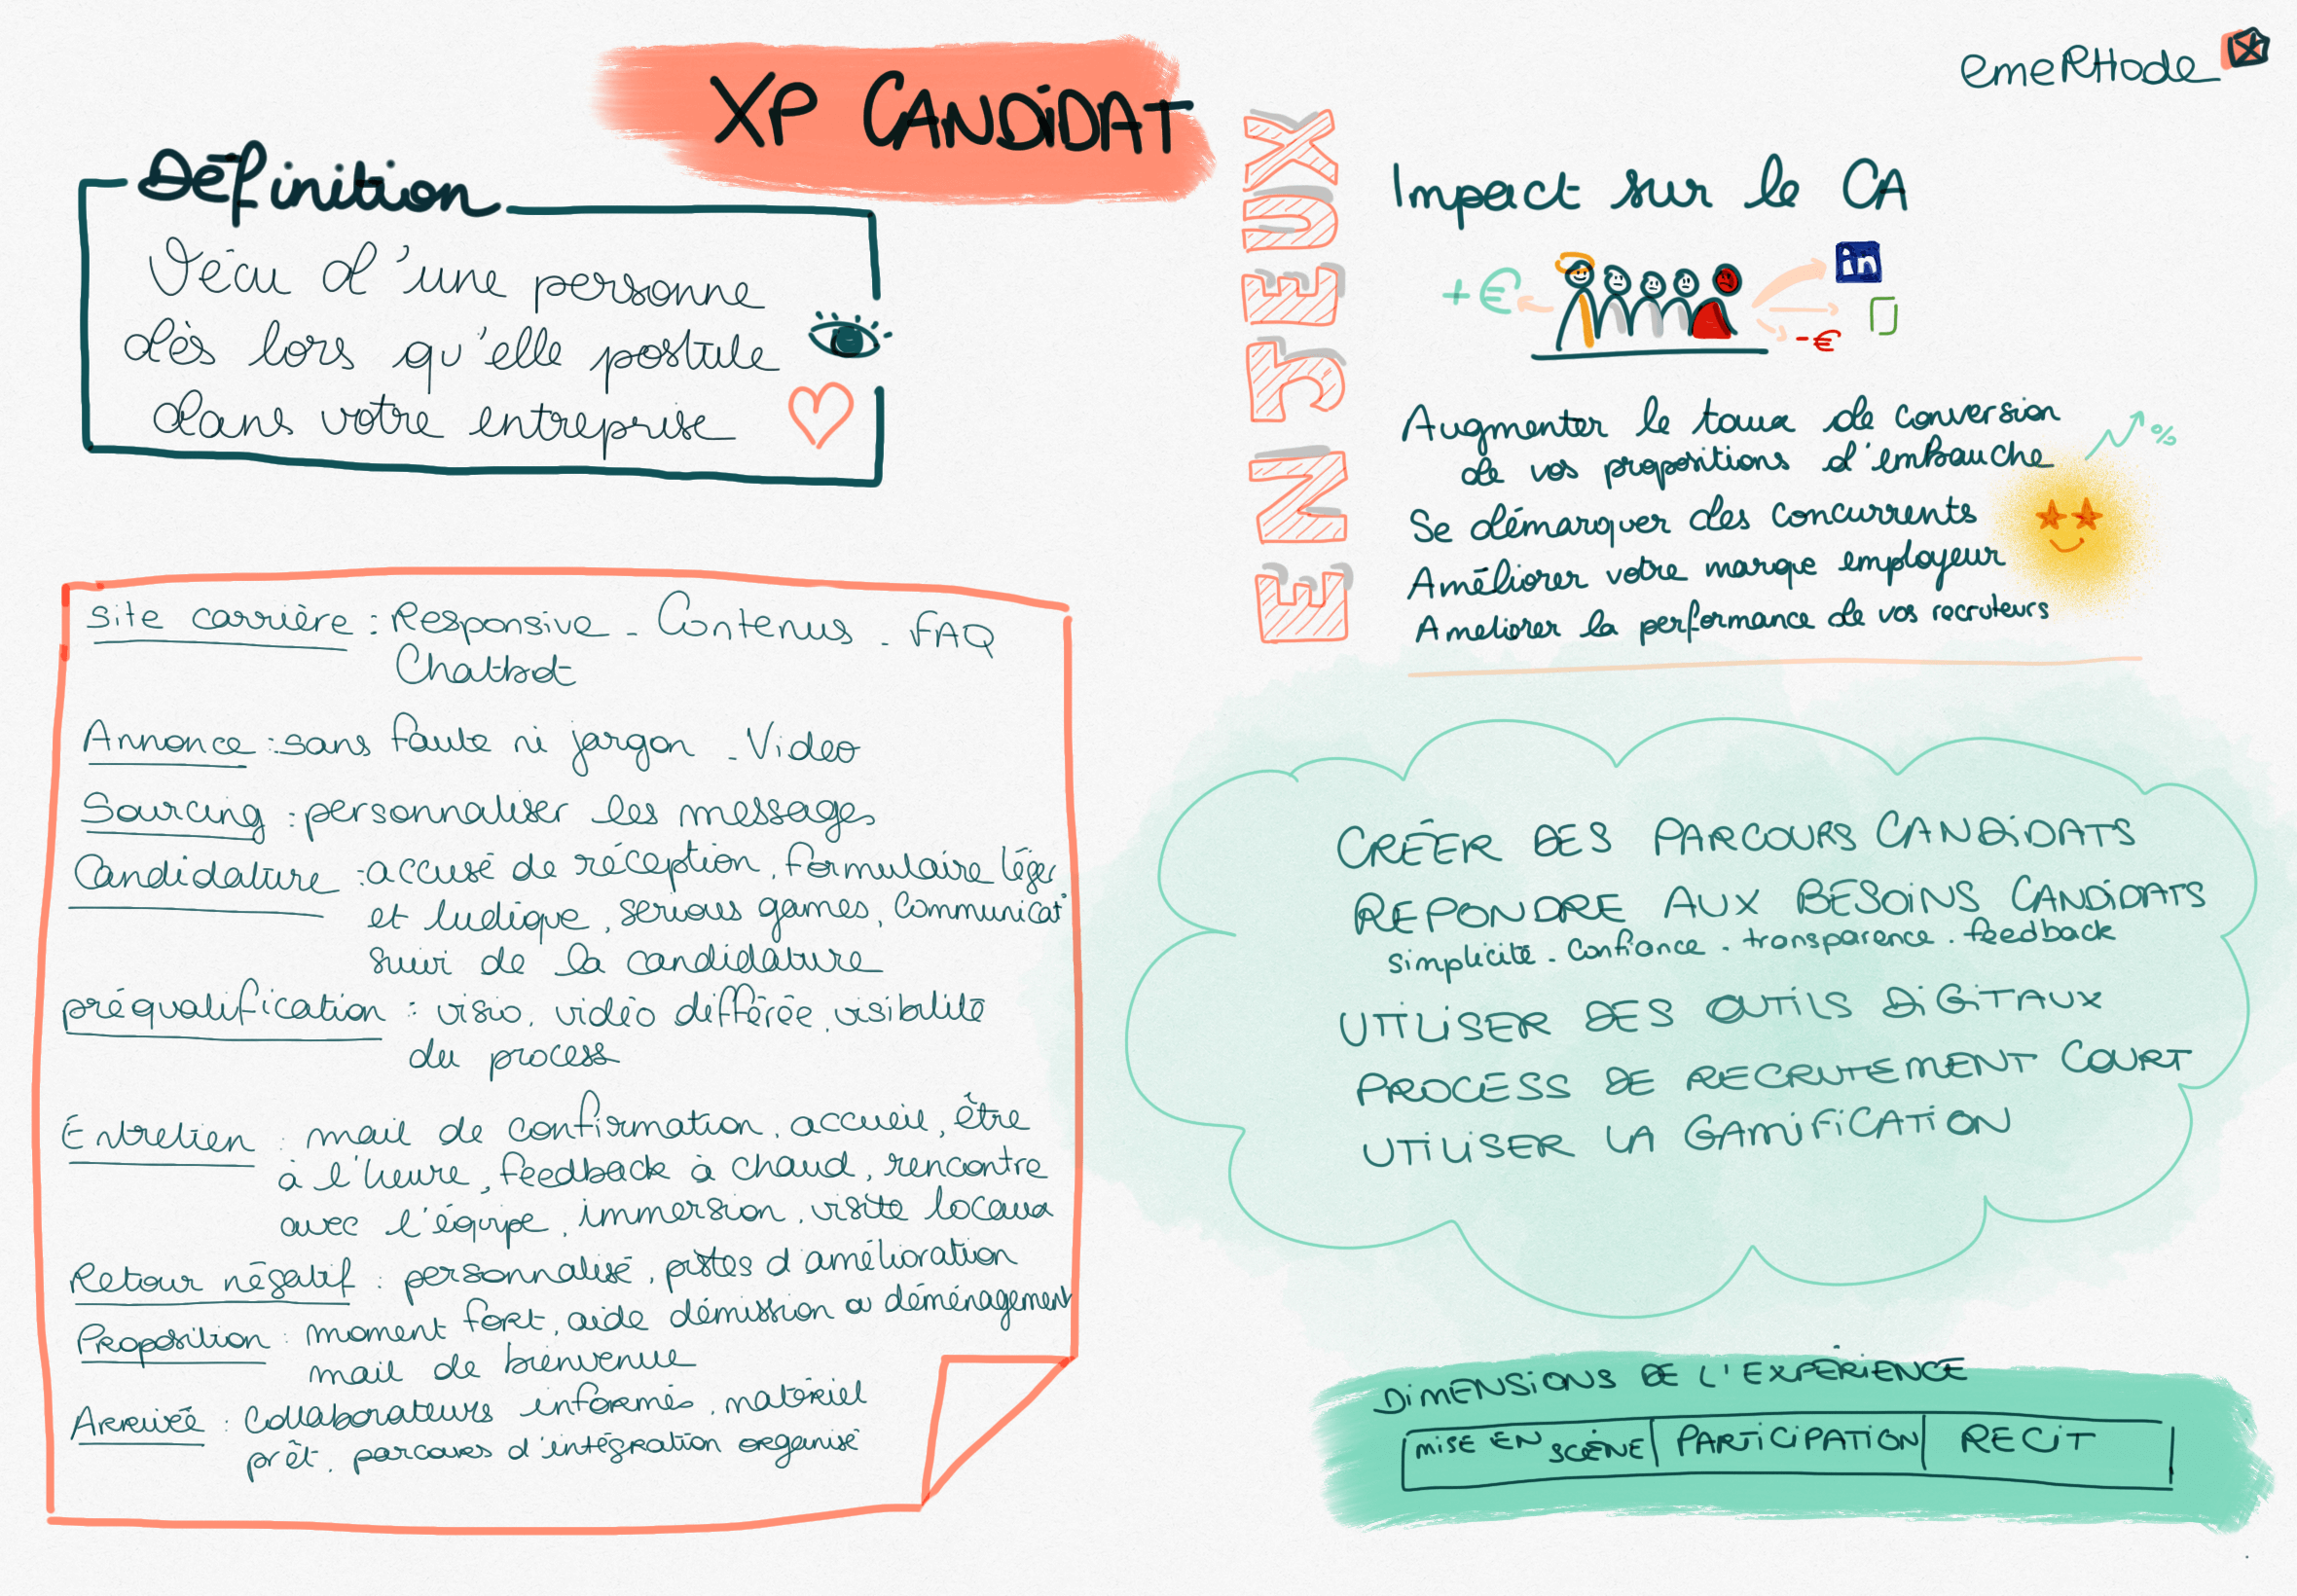 XP CANDiDAT
emeRHode
Définition
Vécu d'une personne
dès lors qu'elle postule
dans votre entreprise
ENJEUX
Impact sur le CA
+€
in
-€
Augmenter le taux de conversion
de vos propositions d'embauche
%
Se démarquer des concurrents
Améliorer votre marque employeur
Ameliorer la performance de vos recruteurs
Site carrière : Responsive - Contenus - FAQ
Chatbot
Annonce : sans faute ni jargon - Video
Sourcing : personnaliser les messages
Candidature : accusé de réception, formulaire léger
et ludique, serious games, communicat°
suivi de la candidature
préqualification : visio, vidéo différée, visibilité
du process
Entretien : mail de confirmation, accueil, être
à l'heure, feedback à chaud, rencontre
avec l'équipe, immersion, visite locaux
Retour négatif : personnalisé, pistes d'amélioration
Proposition : moment fort, aide démission ou déménagement
mail de bienvenue
Arrivée : Collaborateurs informés, matériel
prêt, parcours d'intégration organisé
CRÉER DES PARCOURS CANDiDATS
REPONDRE AUX BESOiNS CANDiDATS
simplicité - Confiance - transparence - feedback
UTiLiSER DES OUTiLS DiGiTAUX
PROCESS DE RECRUTEMENT COURT
UTiLiSER LA GAMiFiCATiON
DiMENSiONS DE L'EXPÉRiENCE
MiSE EN SCÈNE | PARTiCiPATiON | RECiT